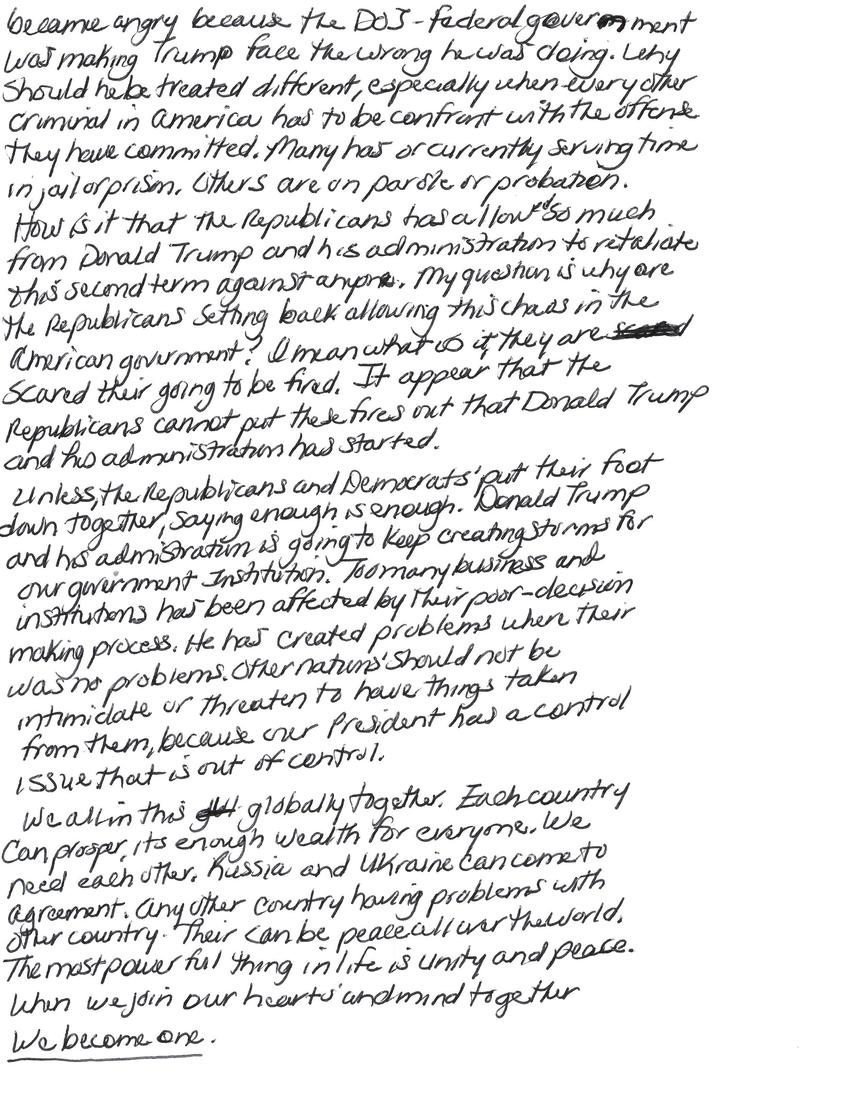 became angry because the DOJ - federal government
was making Trump face the wrong he was doing. Why
should he be treated different, especially when every other
criminal in America has to be confront with the offense
they have committed. Many has or currently serving time
in jail or prism. Others are on parole or probation.
How is it that the Republicans has allowed so much
from Donald Trump and his administration to retaliate
this second term against anyone. My question is why are
the Republicans setting back allowing this chaos in the
American government? I mean what is it, they are
scared their going to be fired. It appear that the
Republicans cannot put these fires out that Donald Trump
and his administration has started.
Unless, the Republicans and Democrats' put their foot
down together, saying enough is enough. Donald Trump
and his administration is going to keep creating storms for
our government Institution. Too many business and
institutions has been affected by their poor-decision
making process. He has created problems when their
was no problems. Other nations' should not be
intimidate or threaten to have things taken
from them, because our President has a control
issue that is out of control.
We all in this globally together. Each country
Can prosper, its enough wealth for everyone. We
need each other. Russia and Ukraine can come to
agreement. Any other country having problems with
other country. Their can be peace all over the world.
The most power full thing in life is unity and peace.
When we join our hearts' and mind together
We become one.